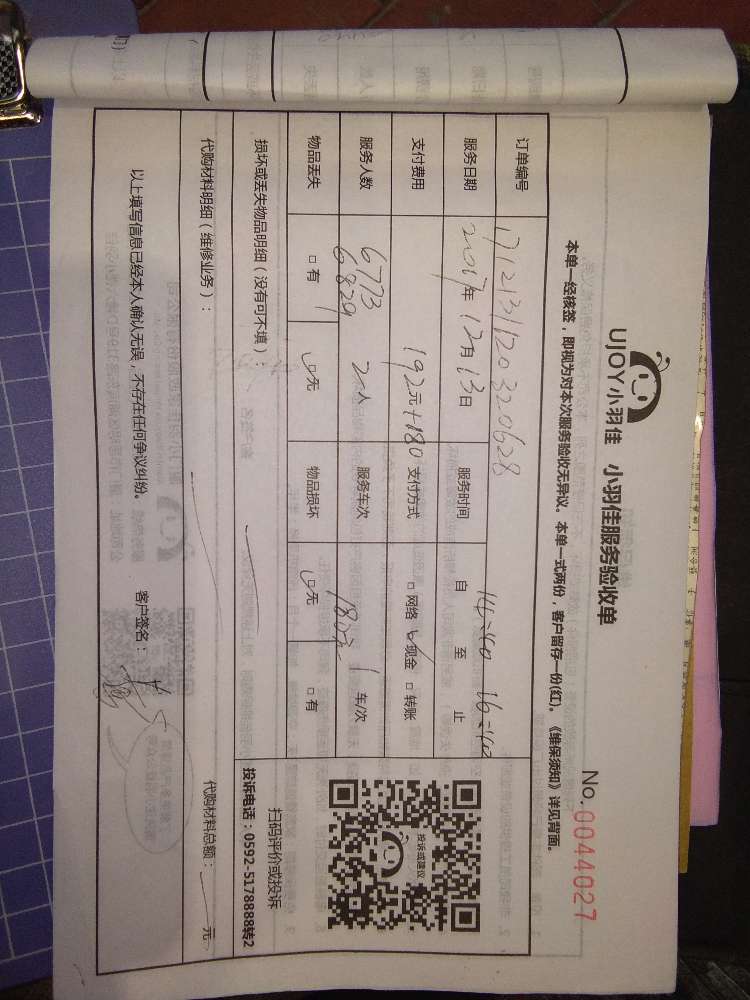 UJOY小羽佳 小羽佳服务验收单
No. 0044027
本单一经核签，即视为对本次服务验收无异议。本单一式两份，客户留存一份(红)。《维保须知》详见背面。
订单编号 171213112032 0628
服务日期 2017年 12月 13日 服务时间 自 14:40 至 16:40 止
支付费用 192元+180 支付方式 □ 网络 ☑ 现金 □ 转账
180元
服务人数 6773 6829 2人 服务车次 1 车/次
物品丢失 □ 有 ☑ 无 物品损坏 ☑ 无 □ 有
损坏或丢失物品明细（没有可不填）：
投诉或建议
扫码评价或投诉
投诉电话：0592-5178888转2
代购材料明细（维修业务）：
代购材料总额： 元
以上填写信息已经本人确认无误，不存在任何争议纠纷。 客户签名：